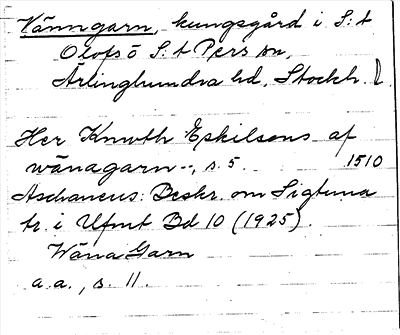 Vänngarn, kungsgård i S:t
Olofs o S:t Pers sn,
Ärlinghundra hd, Stockh. l.
Her Knwth Eskilsons af
wänagarn--, s. 5. 1510
Aschaneus: Beskr. om Sigtuna
tr. i Ufmt Bd 10 (1925).
Wäna Garn
a.a., s. 11.